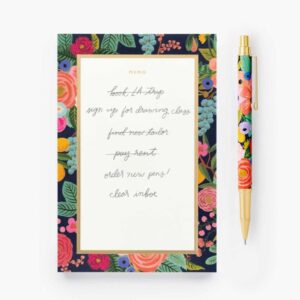 MEMO
book LA trip
sign up for drawing class
find new tailor
pay rent
order new pens!
clear inbox